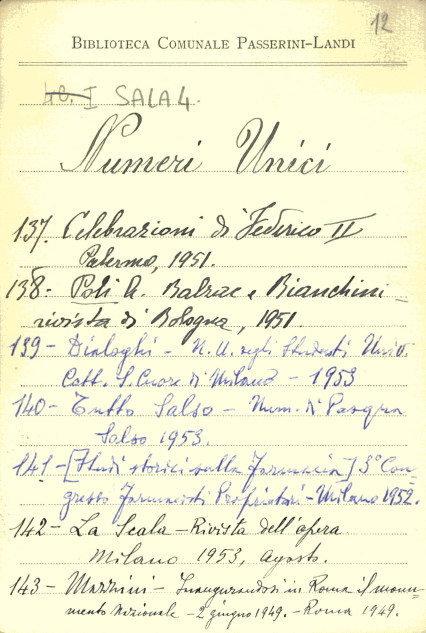 12
BIBLIOTECA COMUNALE PASSERINI-LANDI
I SALA 4
Numeri Unici
137. Celebrazioni di Federico II
Palermo, 1951.
138- Poli A. Balzac e Bianchini -
rivista di Bologna, 1951.
139- Dialoghi - N. U. degli Studenti Univ.
Catt. S. Cuore di Milano - 1953
140- Tutto Salso - Num. di Pasqua
Salso 1953.
141-[Studi storici sulla farmacia] 5° Con-
gresso Farmacisti Proprietari - Milano 1952.
142- La Scala - Rivista dell'opera
Milano 1953, agosto.
143- Mazzini - Inaugurandosi in Roma il monu-
mento Nazionale - 2 giugno 1949. - Roma 1949.